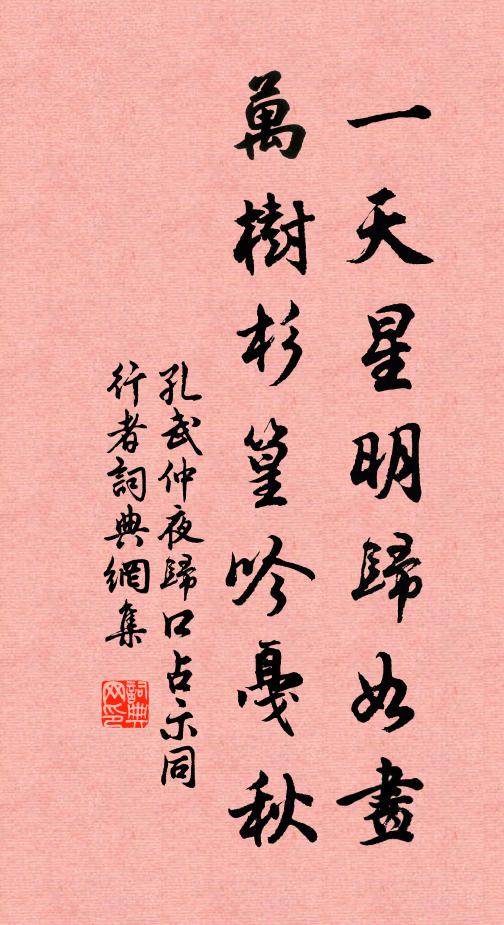 一天星明歸如畫
萬樹杉篁吟戛秋
孔武仲夜歸口占示同
行者詞典網集
詞典
网印